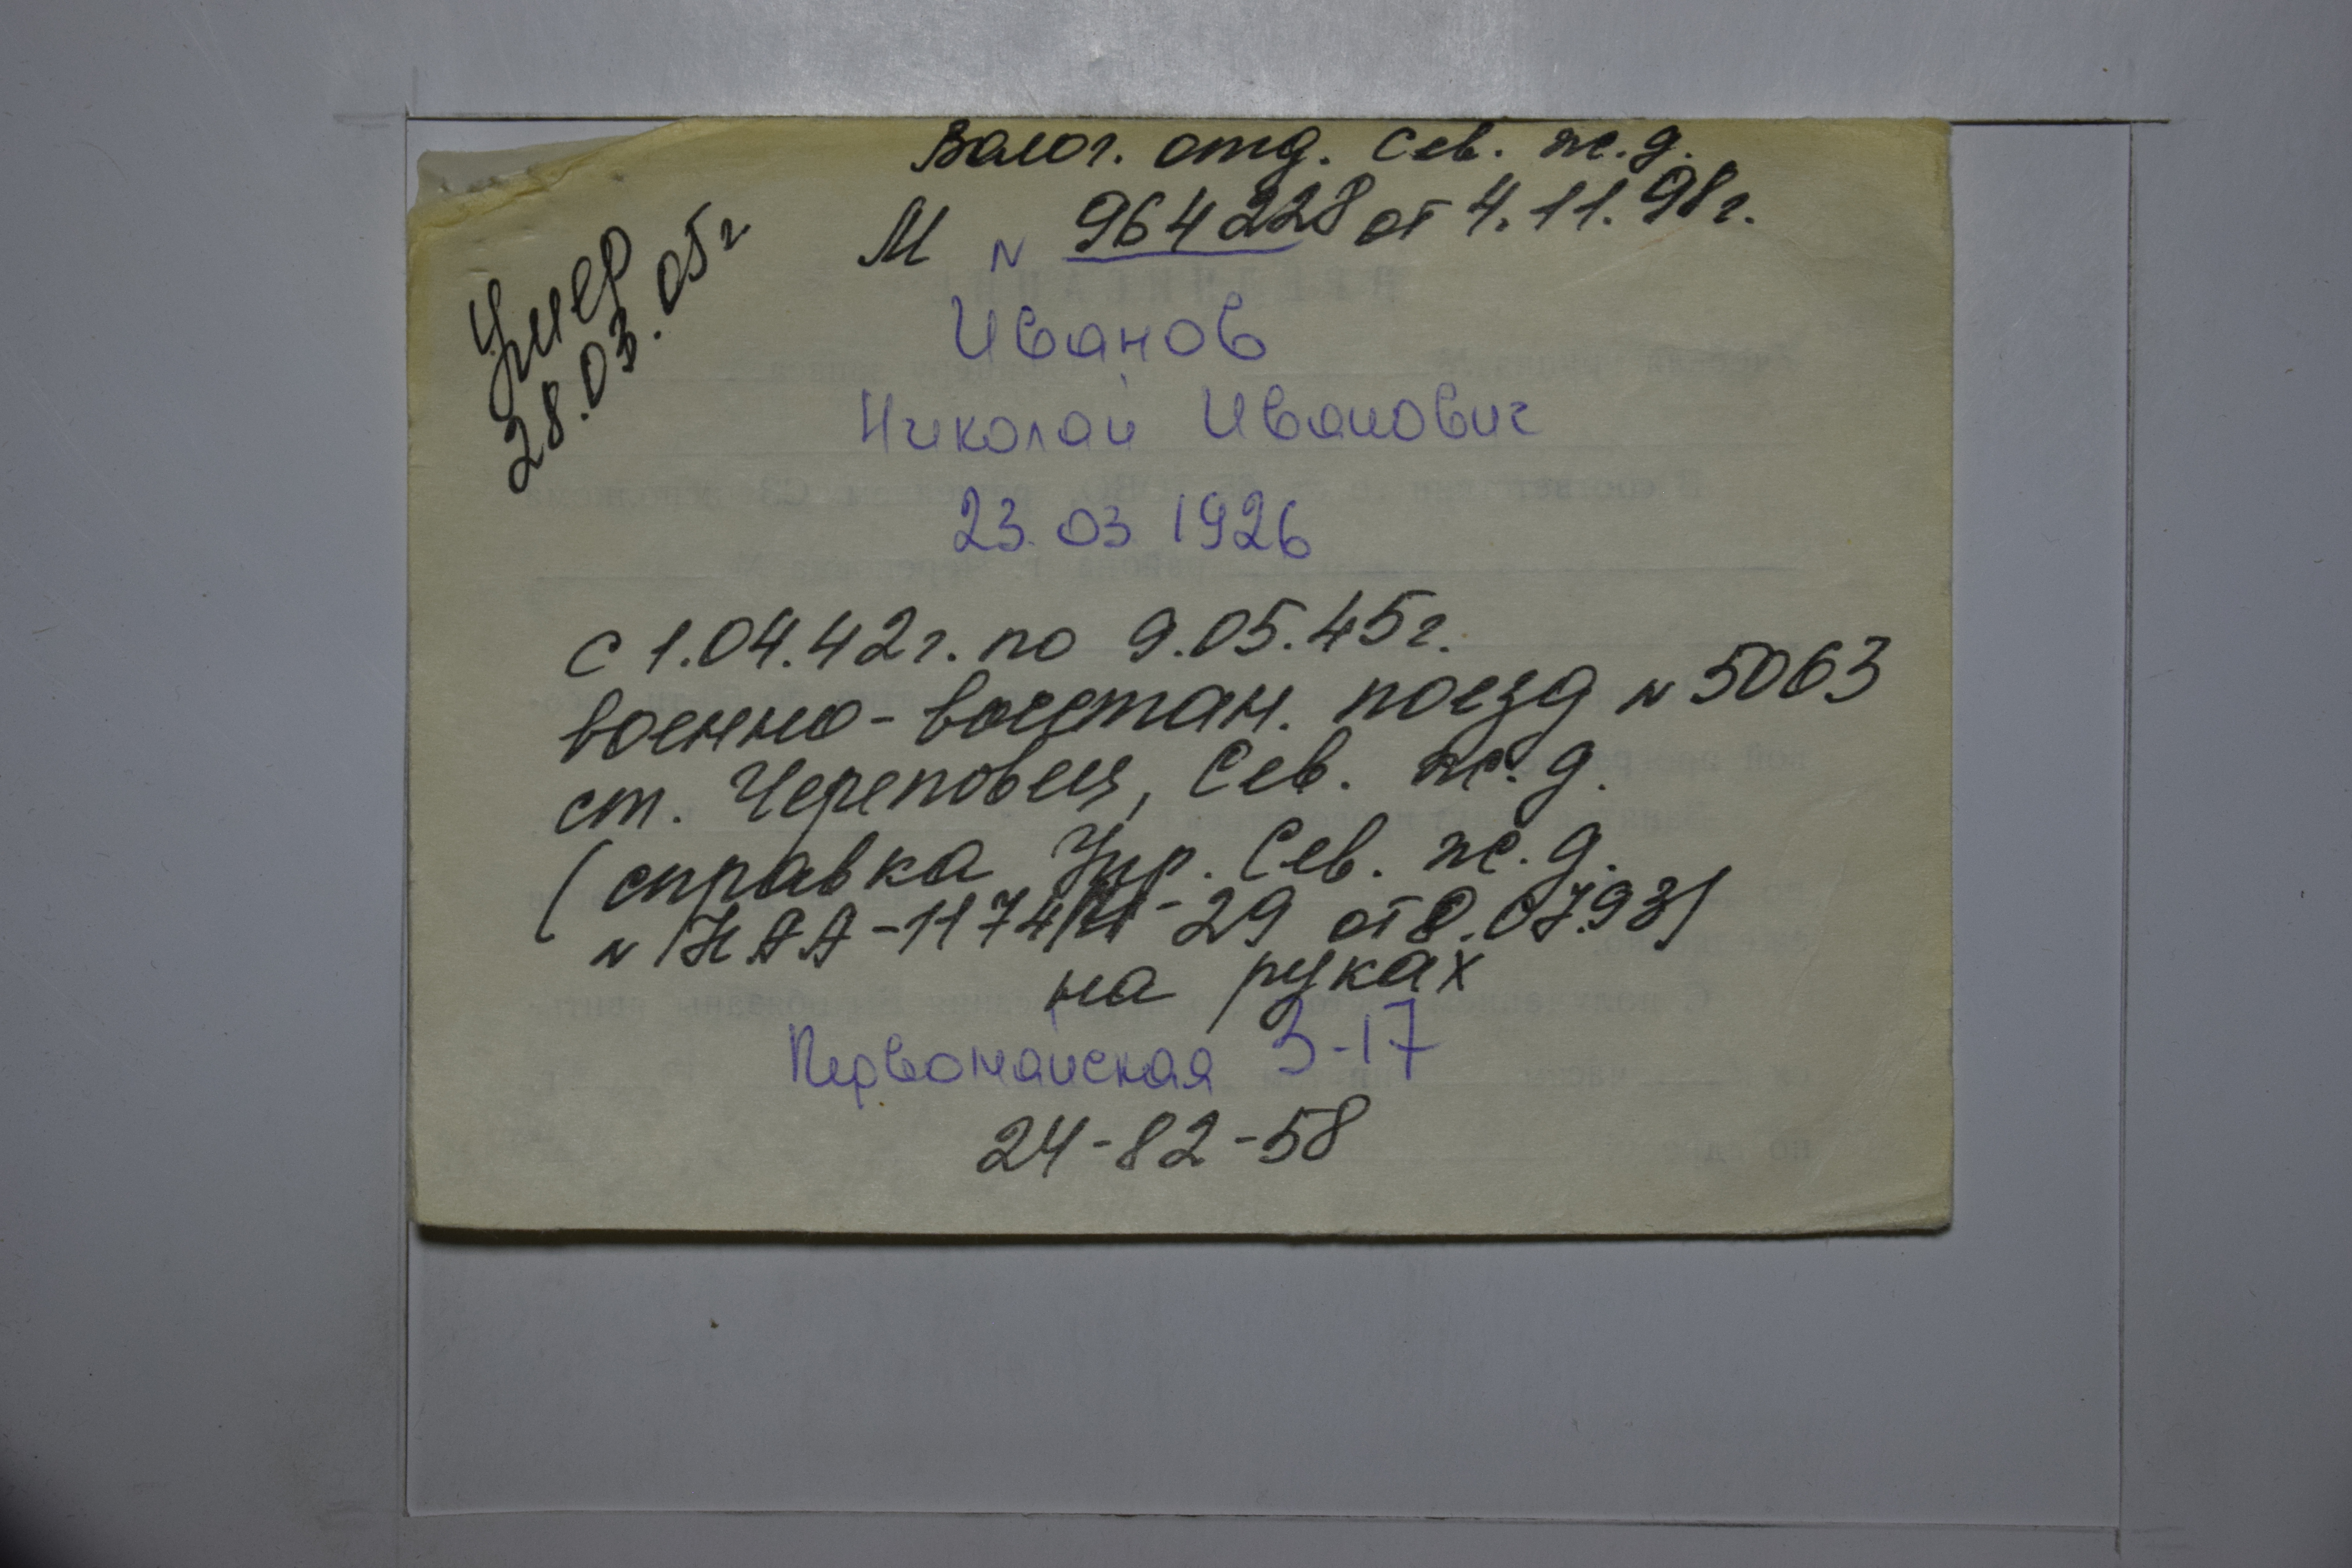 Волог. отд. Сев. ж.д.
М № 964228 от 4.11.98г.
Умер
28.03.05г
Иванов
Николай Иванович
23.03 1926
с 1.04.42г. по 9.05.45г.
военно-восстан. поезд № 5063
ст. Череповец, Сев. ж.д.
(справка Упр. Сев. ж.д.
от 8.07.93)
на руках
Первомайская 3-17
24-82-58